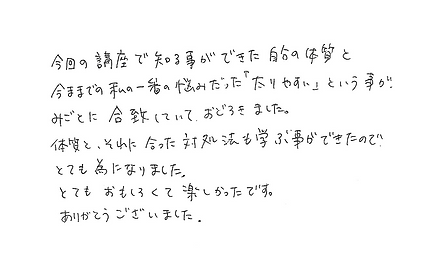 今回の講座で知る事ができた自分の体質と
今までの私の一番の悩みだった「太りやすい」という事が
みごとに合致していておどろきました。
体質と、それに合った対処法も学ぶ事ができたので
とても為になりました。
とてもおもしろくて楽しかったです。
ありがとうございました.